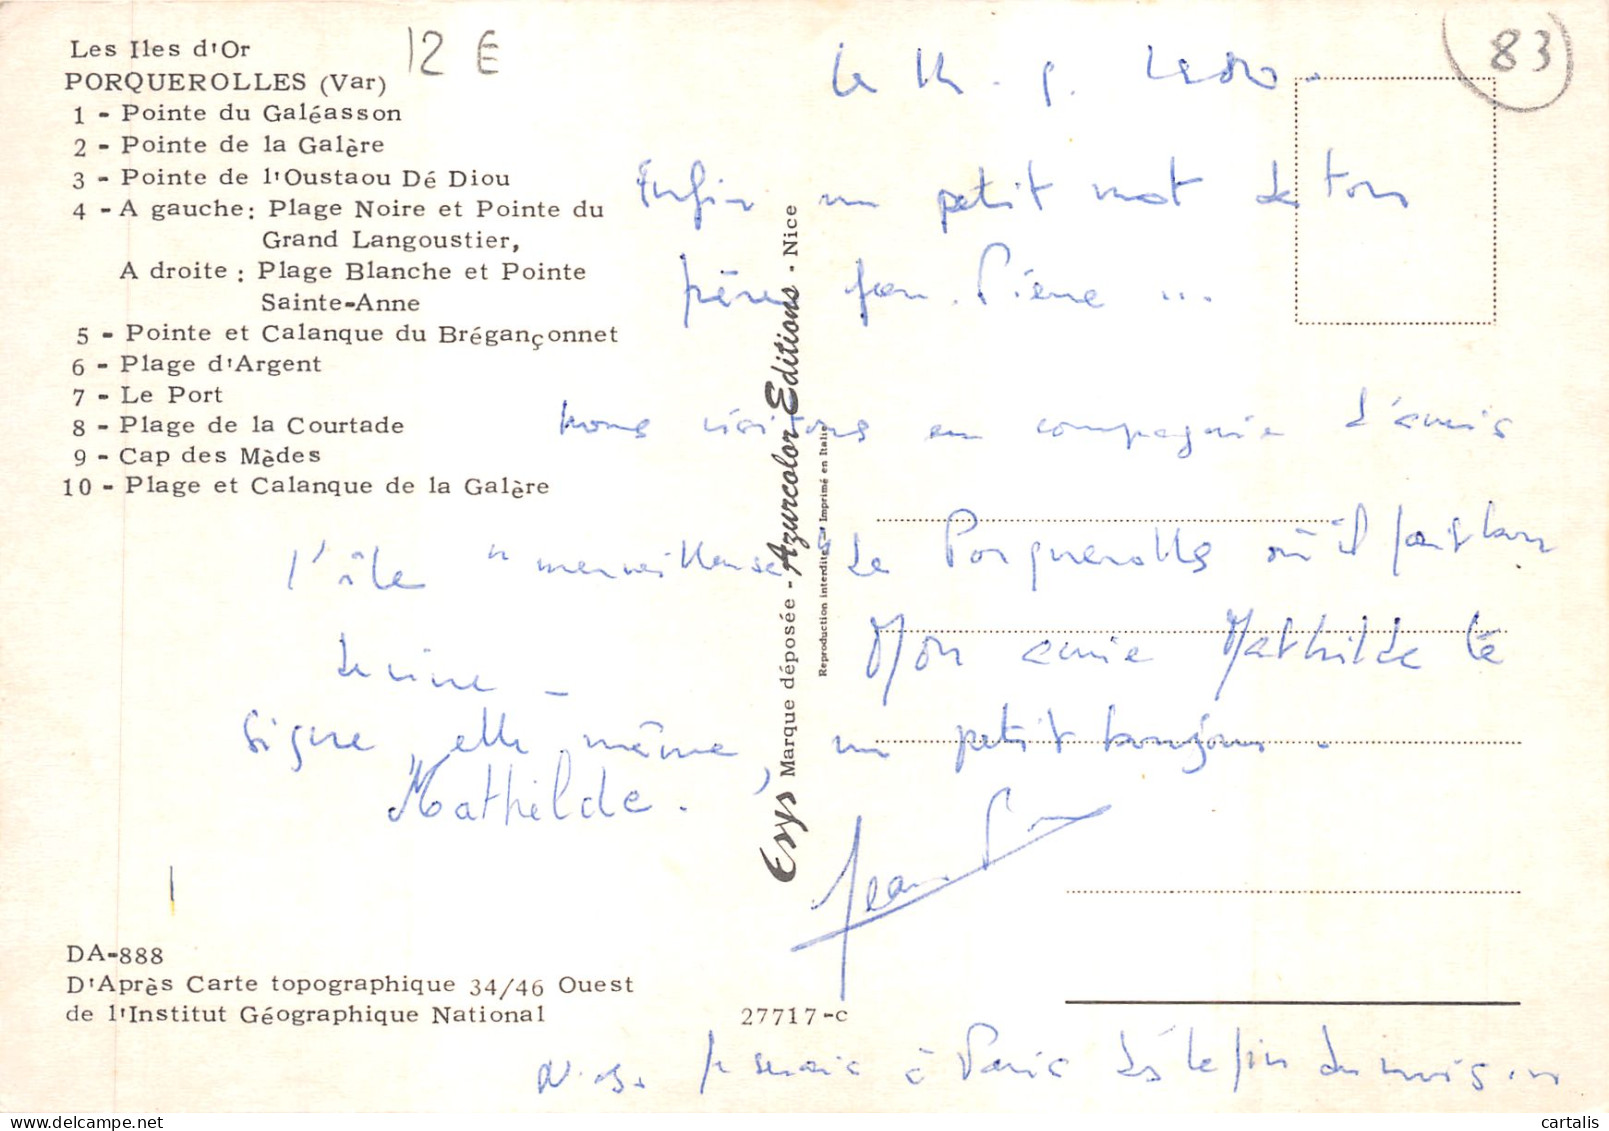 Les Iles d'Or
PORQUEROLLES (Var)
1 - Pointe du Galéasson
2 - Pointe de la Galère
3 - Pointe de l'Oustaou Dé Diou
4 - A gauche: Plage Noire et Pointe du
Grand Langoustier,
A droite : Plage Blanche et Pointe
Sainte-Anne
5 - Pointe et Calanque du Brégançonnet
6 - Plage d'Argent
7 - Le Port
8 - Plage de la Courtade
9 - Cap des Mèdes
10 - Plage et Calanque de la Galère
12 E
83
Enfin un petit mot de ton
frère Jean-Pierre ...
Nous visitons en compagnie d'amis
l'île "merveilleuse" de Porquerolles où il fait bon
vivre -
Mon amie Mathilde te
signe, elle même, un petit bonjour.
Mathilde.
Jean-P
Je serais à Paris dès la fin du mois
Esys Marque déposée - Azurcolor Editions - Nice
Reproduction interdite - Imprimé en Italie
DA-888
D'Après Carte topographique 34/46 Ouest
de l'Institut Géographique National
27717-c
cartalis